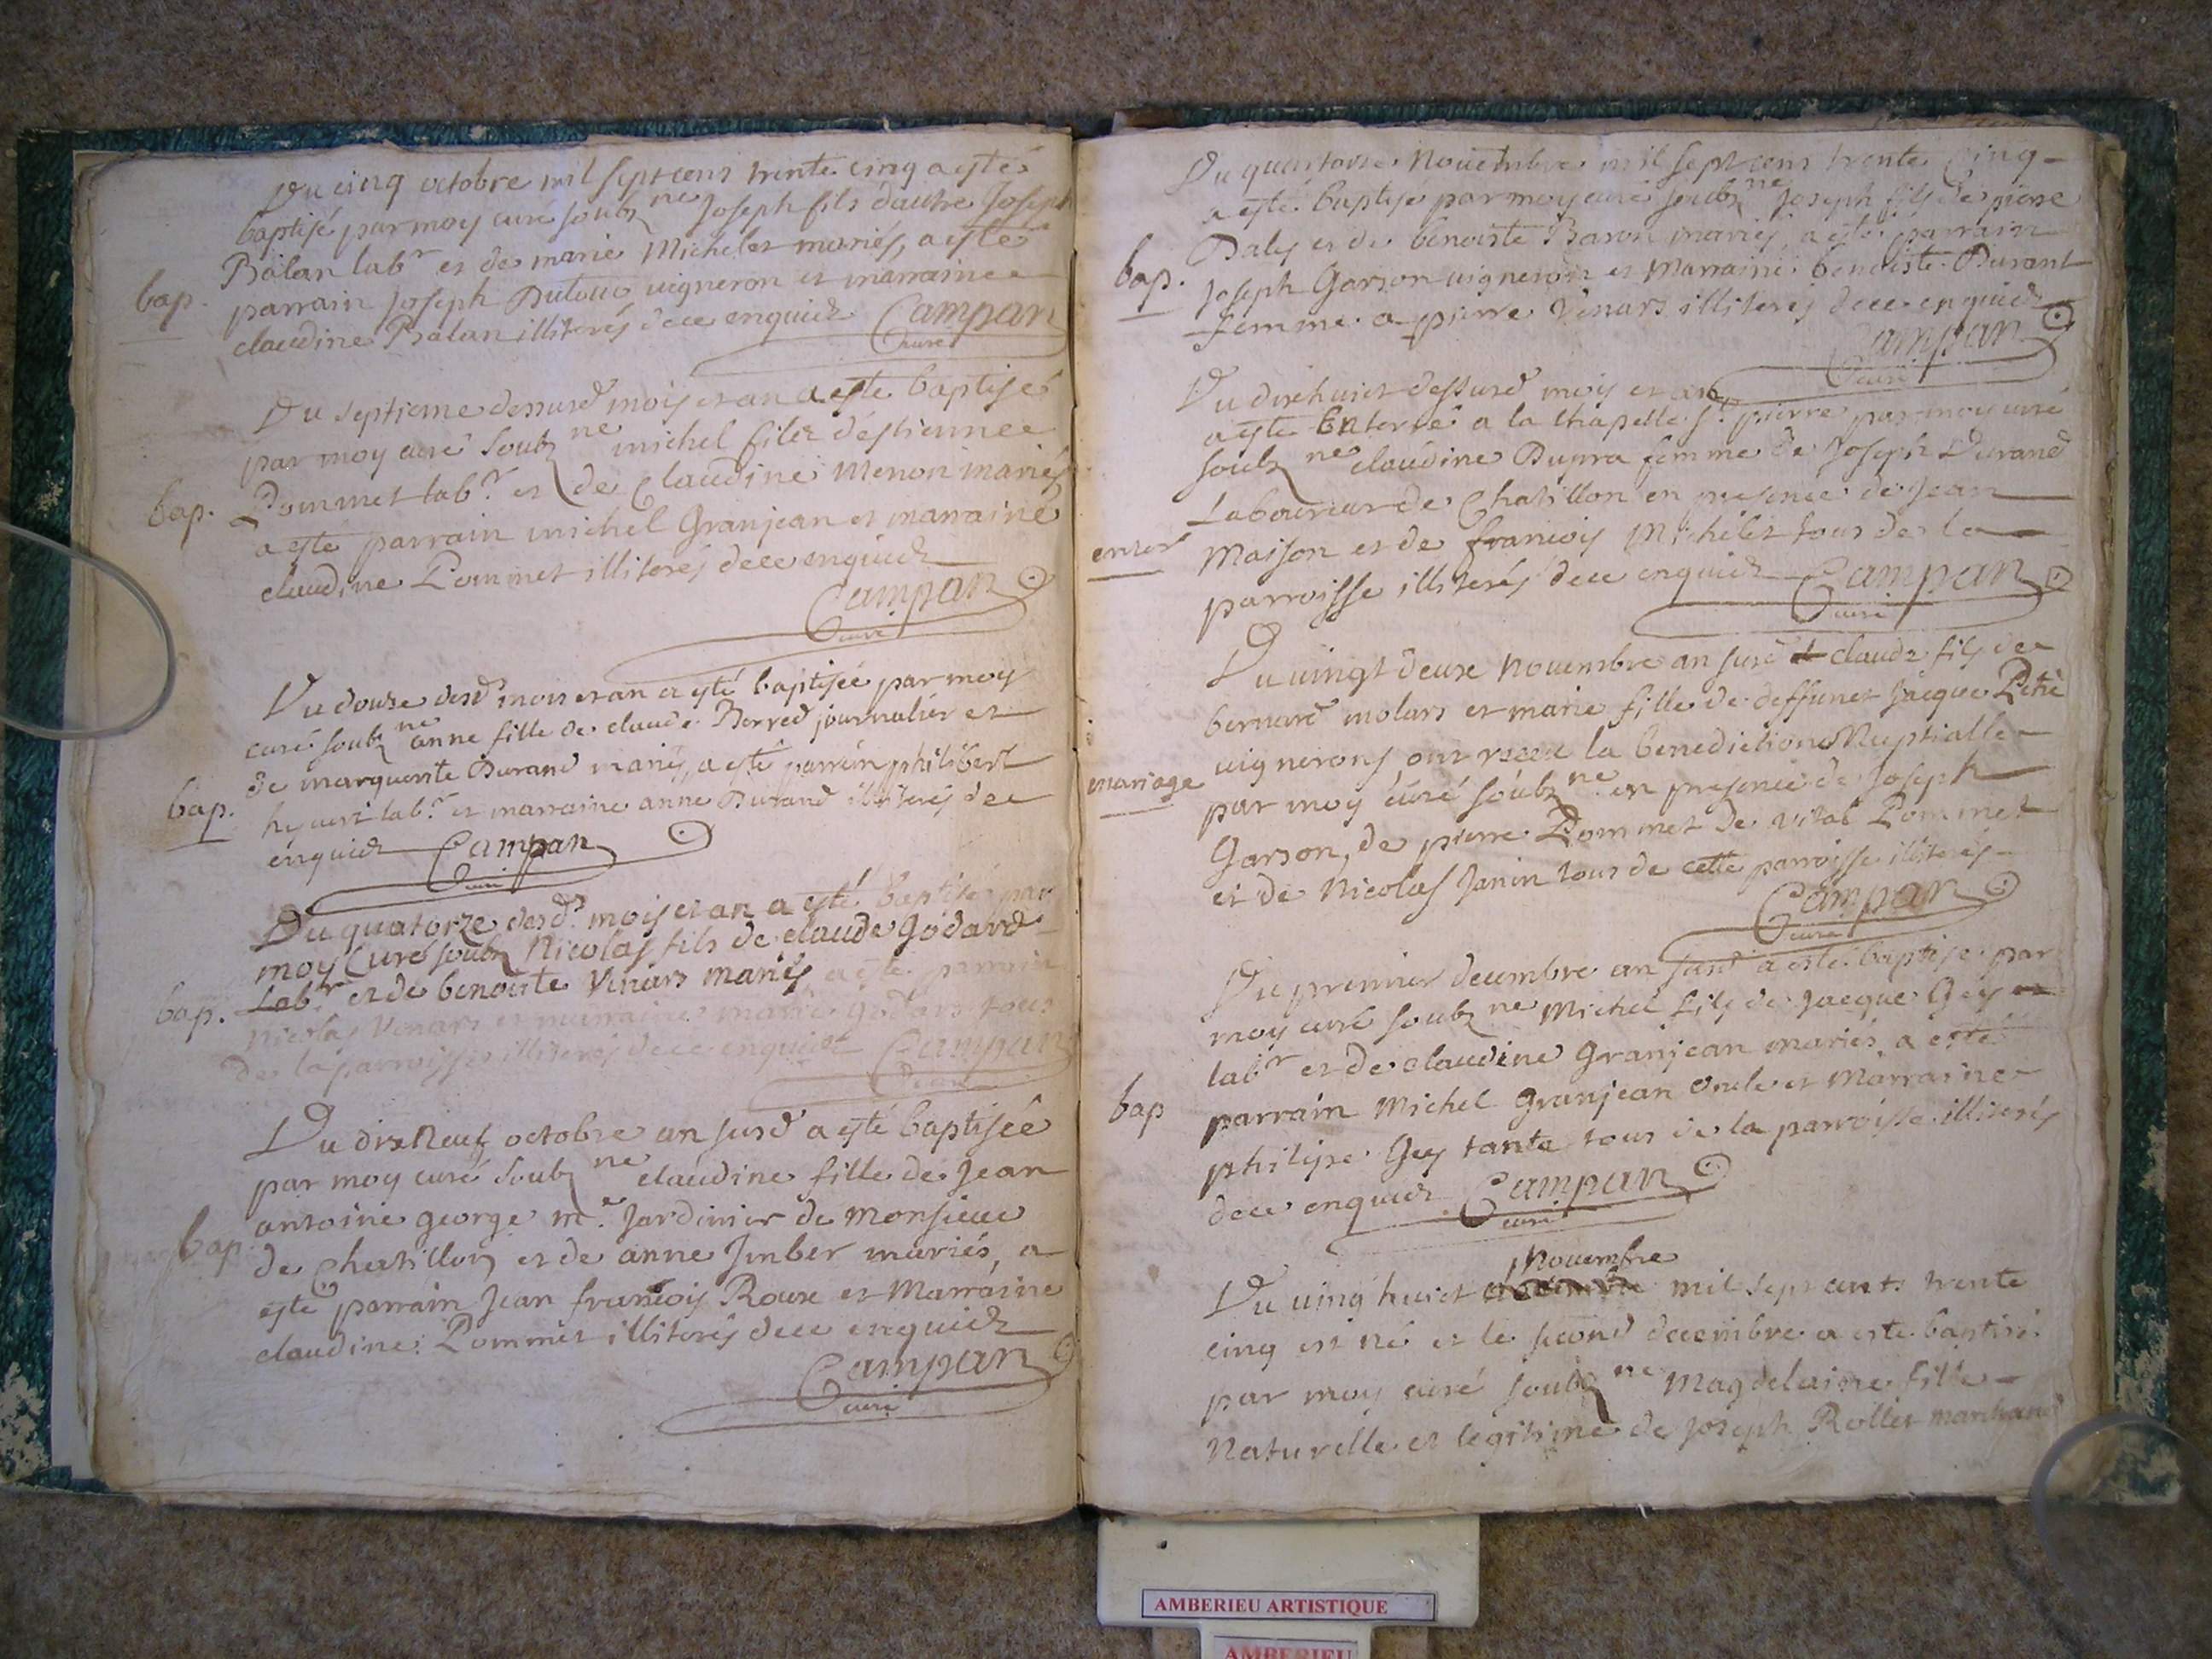 Du cinq octobre mil sept cens trente cinq a esté
baptisé par moy curé soubz ne Joseph fils d'autre Joseph
Balan labr et de marie Michelet mariés, a esté
bap.
parrain Joseph Dutour vigneron et marraine
claudine Balan illiterés de ce enquis Campan
curé
Du septieme dessusd mois et an a esté baptisé
par moy curé soubz ne michel filz d'estienne
bap.
Pommet labr et de Claudine Menon mariés
a esté parrain michel Granjean et marraine
claudine Pommet illiterés de ce enquis
Campan
curé
Du douze desd mois et an a esté baptisée par moy
curé soubz ne anne fille de claude Borred journalier et
de marguerite Durand mariés, a esté parrin philibert
bap.
labr et marraine anne Durand illiterés de ce
enquis Campan
curé
Du quatorze desd mois et an a esté baptisé par
moy Curé soubz Nicolas fils de claude Godard
bap.
Labr et de benoiste Venars mariés a esté parrain
nicolas Venars et marraine marie Godars tous
de la parroisse illiterés de ce enquis Campan
curé
Du dix Neuf octobre an susd a esté baptisée
par moy curé soubz ne claudine fille de Jean
antoine george me Jardinier de Monsieur
bap
de Chatillon et de anne Jmber mariés, a
esté parrain Jean francois Roux et Marraine
claudine Pommet illiterés de ce enquis
Campan
curé
Du quartorze Novembre mil sept cens trente Cinq
a esté baptisé par moy curé soubz ne Joseph fils de pierre
Baley et de benoiste Baron mariés, a esté parrain
bap.
Joseph Garson vigneron et Marraine benoiste Durant
femme a pierre Venars illiterés de ce enquis
Campan
curé
Du dixhuict dessusd mois et an
a esté Enterré a la Chapelle St pierre par moy curé
soubz ne claudine Dupra femme de Joseph Durand
Laboureur de Chatillon en presence de Jean
enter
Maison et de francois Michelet tous de la
parroisse illiterés de ce enquis Campan
curé
Du vingt deux Novembre an susd claude fils de
bernard molars et marie fille de deffunct Jacque Petit
vignerons, ont receu la benediction Nuptialle
mariage
par moy curé soubz ne en presence de Joseph
Garson, de pierre Pommet de vital Pommet
et de Nicolas Janin tous de cette parroisse illiterés
Campan
curé
Du premier decembre an susd a esté baptisé par
moy curé soubz ne Michel fils de Jacque Gey
labr et de claudine Granjean mariés a esté
bap
parrain Michel Granjean oncle et Marraine
philipe Gey tante tous de la parroisse illiterés
de ce enquis Campan
curé
Novembre
Du ving huict mil sept cents trente
cinq est né et le second decembre a esté baptisé
par moy curé soubz ne Magdelaine fille
Naturelle et legitime de Joseph Rollet marchand
AMBERIEU ARTISTIQUE
AMBERIEU